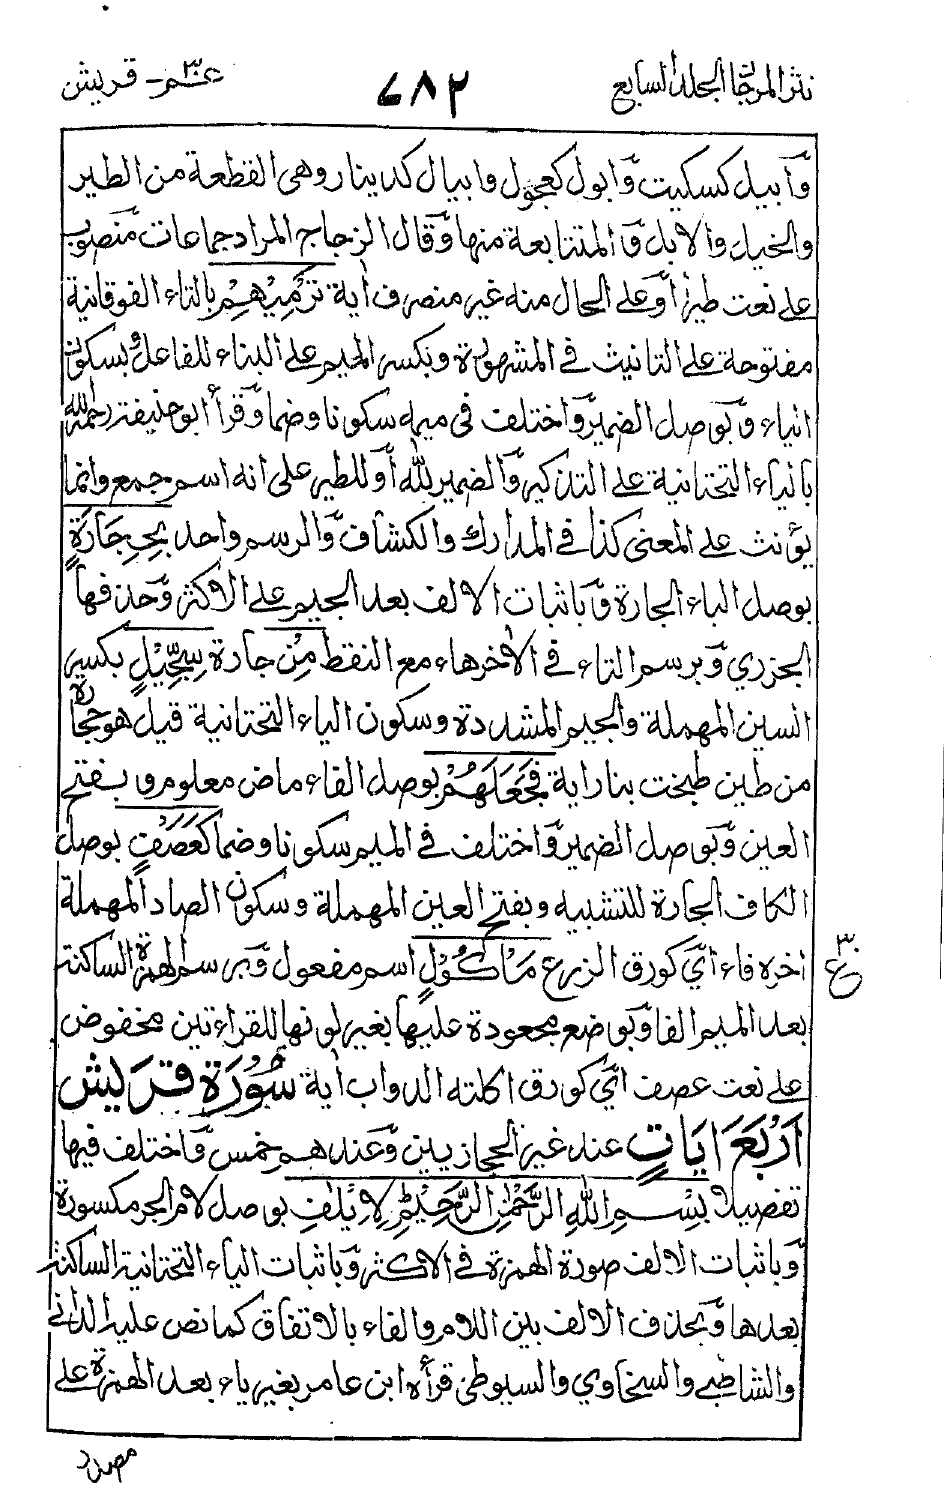 نثر المرجان المجلد السابع
٧٨٢
عم ٣٠ - قريش
وَّابيل كسكيت وَّابول كعجول وابيال كدينار وهى القطعة من الطير
والخيل والابل وَالمتتابعة منها وَّقال الزجاج المراد جماعات منصوب
على نعت طيرا اَوعلى الحال منه غير منصرف اٰية تَرْمِيْهِمْ بالتاء الفوقانية
مفتوحة على التانيث فى المشهورة وبكسر الميم على البناء للفاعل وبسكون
الياء وَّبوصل الضمير وَّاختلف فى ميمه سكونا وضما وَّقرأ ابو حنيفة رحمه الله
بالياء التحتانية على التذكير وَّالضمير لله اَو للطير على انه اسم جمع وانما
يؤنث على المعنى كذا فى المدارك والكشاف وَّالرسم واحد بِحِجَارَةٍ
بوصل الباء الجارة وَّباثبات الالف بعد الجيم على الاكثر وَّحذفها
الجزري وَّبرسم التاء فى الاخرهاء مع النقط مِّنْ جارة سِجِّيْلٍ بكسر
السين المهملة والجيم المشددة وسكون الياء التحتانية قيل هو حجارة
من طين طبخت بنار اٰية فَجَعَلَهُمْ بوصل الفاء ماض معلوم وبفتح
العين وَّبوصل الضمير وَّاختلف فى الميم سكونا وضما كَعَصْفٍ بوصل
الكاف الجارة للتشبيه وبفتح العين المهملة وسكون الصاد المهملة
اخره فاء اي كورق الزرع مَّاْكُوْلٍ اسم مفعول وَّبرسم الهمزة الساكنة
بعد الميم الفا وَّبوضع مجعودة عليها بغير لونها للقراءتين مخفوض
على نعت عصف اي كورق اكلته الدواب اٰية سُوْرَةُ قُرَيْش
اَرْبَعَ اٰيَاتٍ عند غير الحجازيين وَّعندهم خمس وَّاختلف فيها
تفصيلا بِسْمِ اللهِ الرَّحْمٰنِ الرَّحِيْمِ لِاِيْلٰفِ بوصل لام الجر مكسورة
وَّباثبات الالف صورة الهمزة فى الاكثر وَّباثبات الياء التحتانية الساكنة
بعدها وَّبحذف الالف بين اللام والفاء بالاتفاق كما نص عليه الدانى
والشاطبى والسخاوي والسيوطى قرأه ابن عامر بغير ياء بعد الهمزة على
مصدر